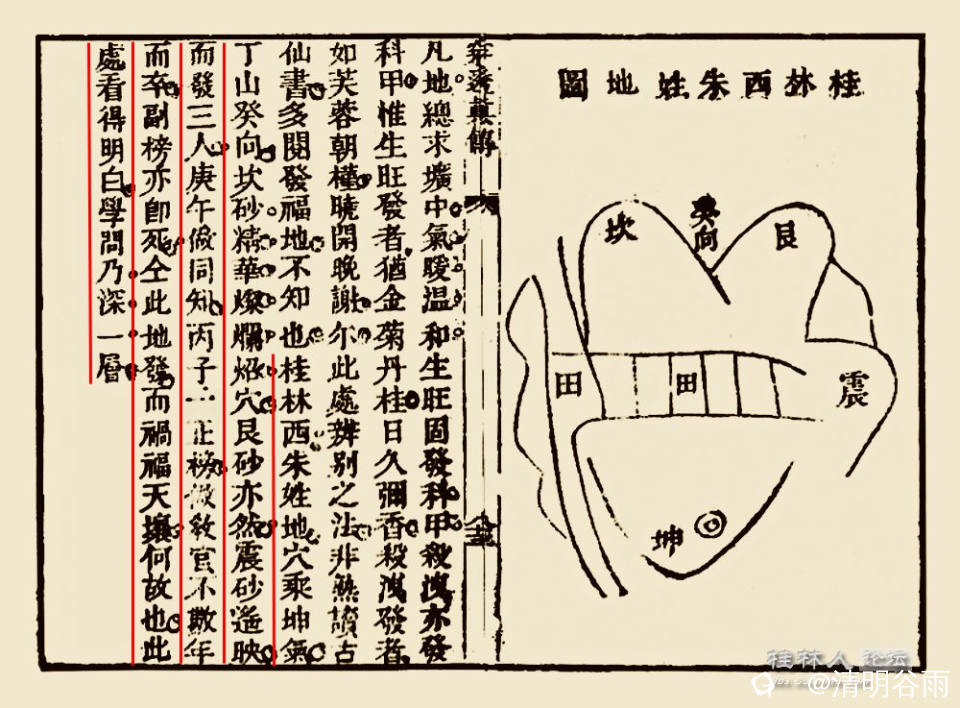 桂林西朱姓地圖
癸向
艮
坎
震
田
田
坤
穿透真傳
凡地總求壙中氣暖溫和生旺固發科甲殺洩亦發
科甲惟生旺發者猶金菊丹桂日久彌香殺洩發者
如芙蓉朝槿曉開晚謝尓此處辨別之法非熟讀古
仙書多閱發福地不知也桂林西朱姓地穴乘坤氣
丁山癸向坎砂精華燦爛炤穴艮砂亦然震砂遙映
而發三人庚午同知丙子一正榜做敎官不數年
而卒副榜亦卽死仝此地發而禍福天壤何故也此
處看得明白學問乃深一層
桂林人 论坛
@清明谷雨